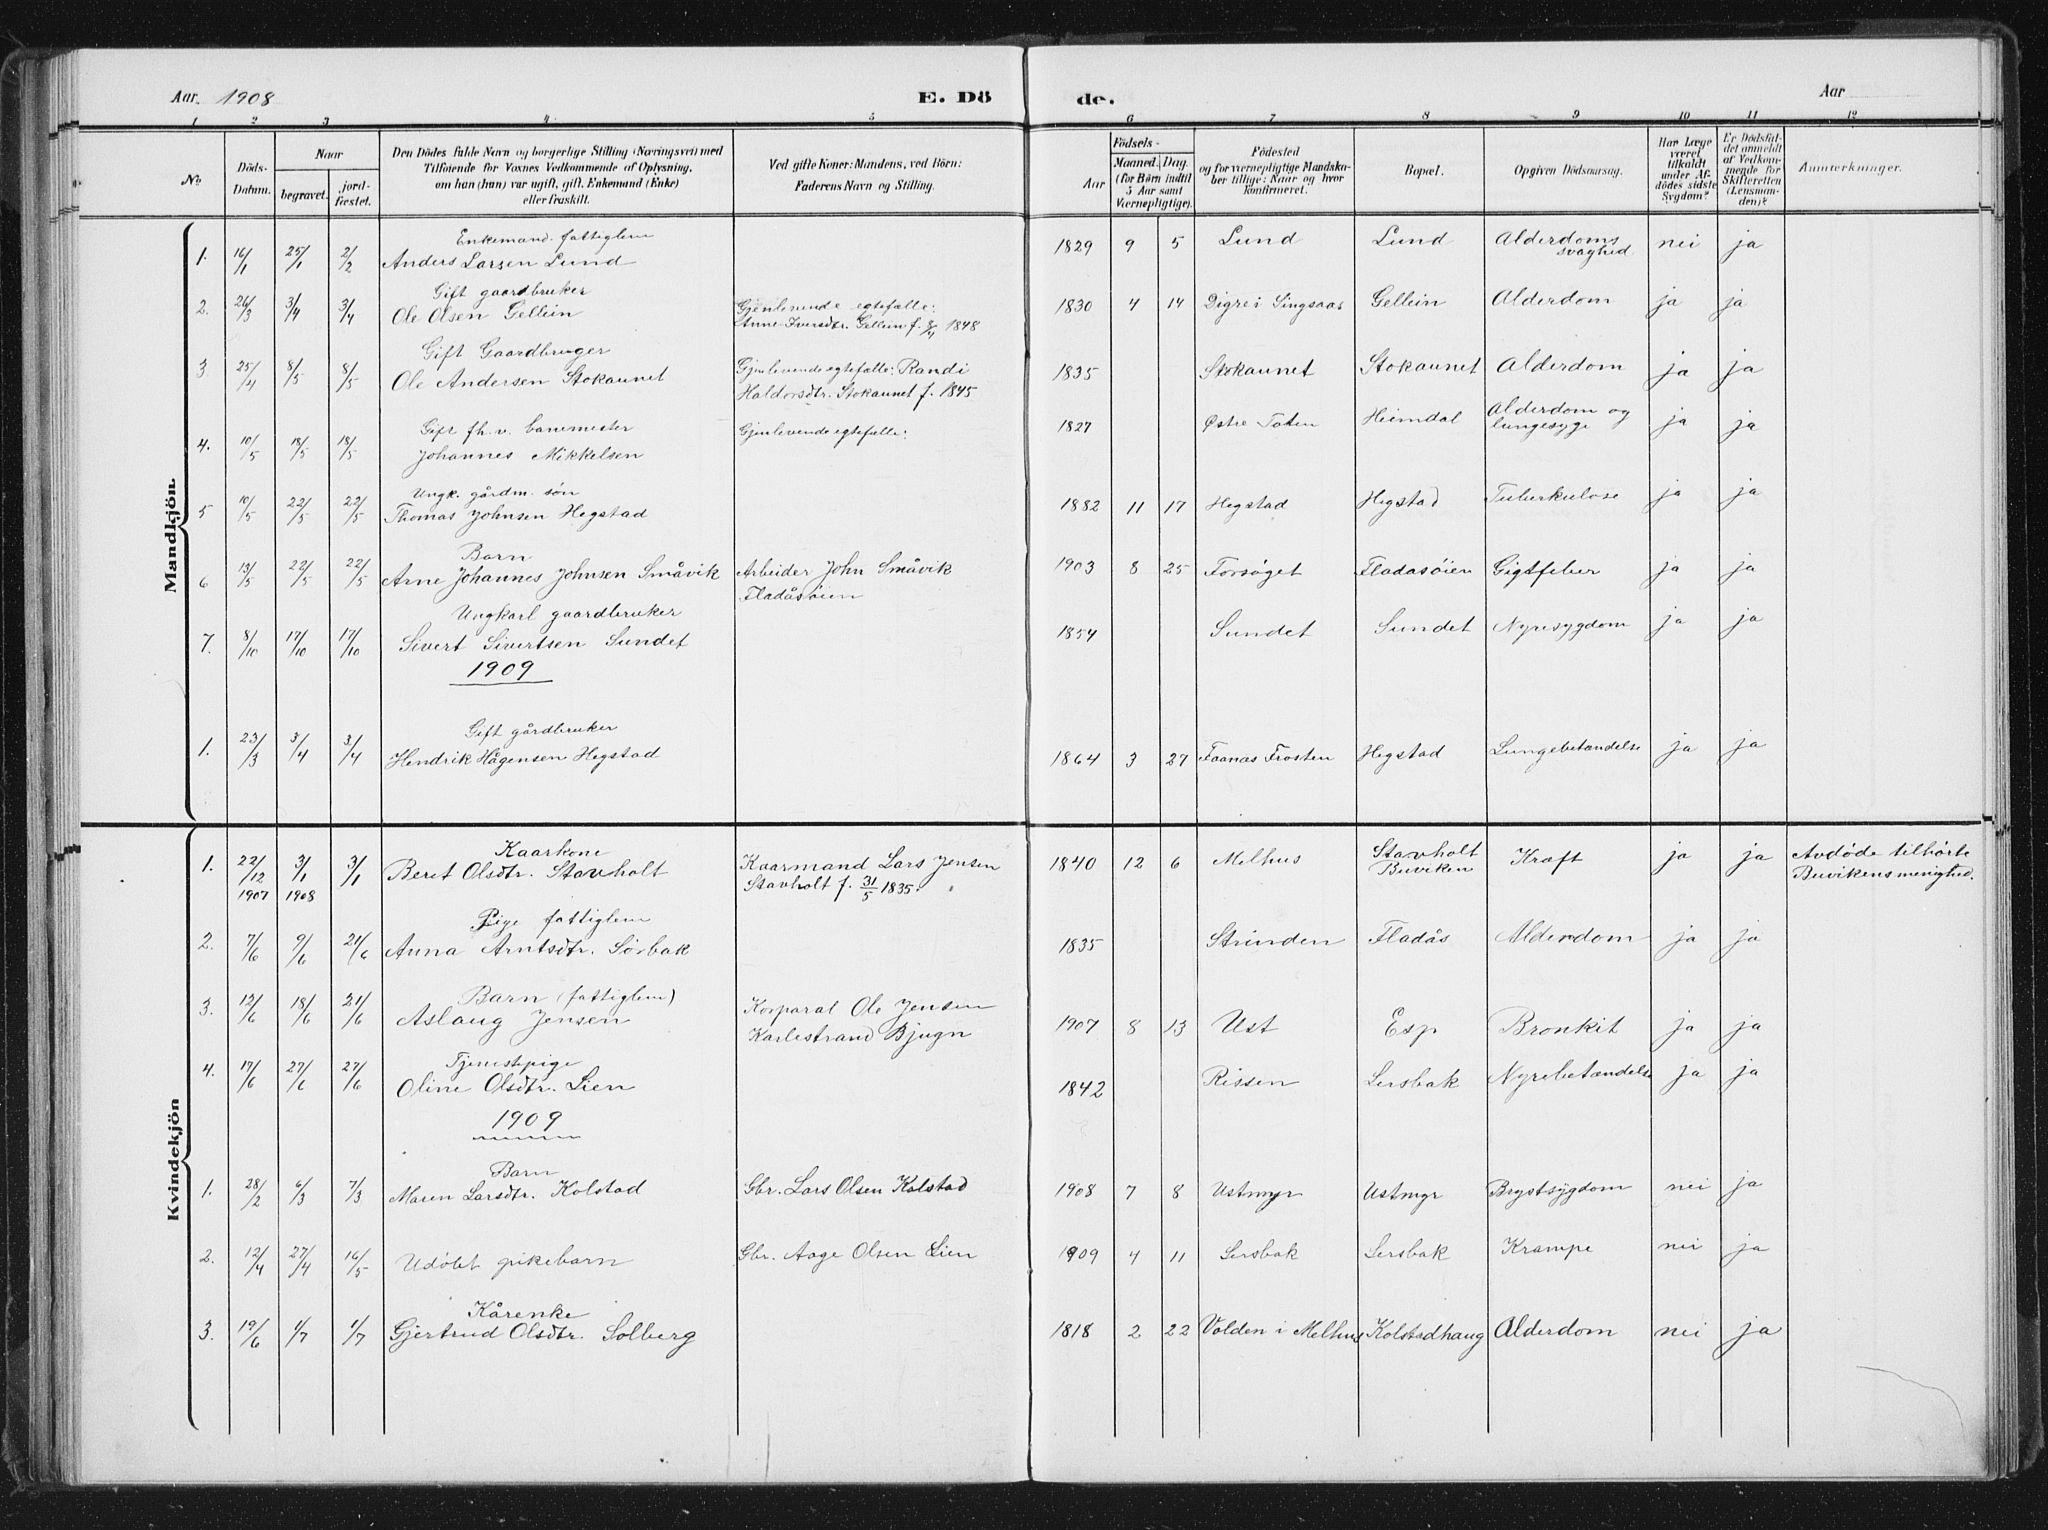 Aar. 1908
E. Dö
de.
Aar
1 2 3 4 5 6 7 8 9 10 11 12
No
Döds-Datum.
Naar
begravet.
jord-fæstet.
Den Dödes fulde Navn og borgerlige Stilling (Næringsvei) med
Tilföiende for Voxnes Vedkommende af Oplysning,
om han (hun) var ugift, gift, Enkemand (Enke)
eller fraskilt.
Ved gifte Koner: Mandens, ved Börn:
Faderens Navn og Stilling.
Födsels-
Aar
Maaned. Dag.
(for Börn indtil
5 Aar samt
Værnepligtige).
Födested
og for værnepligtige Mandska-
ber tillige: Naar og hvor
konfirmeret.
Bopæl.
Opgiven Dödsaarsag.
Har Læge
været
tilkaldt
under Af-
dödes sidste
Sygdom?
Er Dödsfal-
det anmeldt
af Vedkom-
mende for
Skifteretten
(Lensman-
den)?
Anmerkninger.
Mandkjön.
Enkemand. fattiglem
1. 16/1 25/1 2/2 Anders Larsen Lund 1829 9 5 Lund Lund Alderdoms svaghed nei ja
Gift gaardbruker
2. 26/3 3/4 3/4 Ole Olsen Gellein Gjenlevende egtefælle: 1830 4 14 Digre i Singsaas Gellein Alderdom ja ja
Anne Iversdtr. Gellein f. 8/4 1848
Gift Gaardbruger
3. 25/4 8/5 8/5 Ole Andersen Stokaunet Gjenlevende egtefælle: Randi 1835 Stokaunet Stokaunet Alderdom ja ja
Haldorsdtr. Stokaunet f. 1845
Gift fh. v. banemester
4. 10/5 18/5 18/5 Johannes Mikkelsen Gjenlevende egtefælle: 1827 Østre Toten Heimdal Alderdom og lungesyge ja ja
Ungk. gårdm. søn
5 10/5 22/5 22/5 Thomas Johnsen Hegstad 1882 11 17 Hegstad Hegstad Tuberkulose ja ja
Barn
6 13/5 22/5 22/5 Arne Johannes Johnsen Småvik Arbeider John Småvik 1903 8 25 Forsøget Fladasøien Gigtfeber ja ja
Fladåsøien
Ungkarl gaardbruker
7. 8/10 17/10 17/10 Sivert Sivertsen Sundet 1854 Sundet Sundet Nyresygdom ja ja
1909
Gift gårdbruker
1. 23/3 3/4 3/4 Hendrik Hågensen Hegstad 1864 3 27 Faanas Frosten Hegstad Lungebetændelse ja ja
Kvindekjön
Kaarkone
1. 22/12 3/1 3/1 Beret Olsdtr. Stavholt Kaarmand Lars Jensen 1840 12 6 Melhus Stavholt Kræft ja ja Avdøde tilhørte
1907 1908 Stavholt f. 31/5 1835. Buviken Buvikens menighed.
Pige fattiglem
2. 7/6 9/6 21/6 Anna Arntsdtr. Sørbak 1835 Strinden Fladås Alderdom ja ja
Barn (fattiglem)
3. 12/6 18/6 21/6 Aslaug Jensen Korporal Ole Jensen 1907 8 13 Ust Esp Bronkit ja ja
Karlestrand Bjugn
Tjenestepige
4. 17/6 27/6 27/6 Oline Olsdtr. Lien 1842 Rissen Lersbak Nyrebetændelse ja ja
1909
Barn
1. 28/2 6/3 7/3 Maren Larsdtr. Kolstad Gbr. Lars Olsen Kolstad 1908 7 8 Ustmyr Ustmyr Brystsygdom nei ja
2. 12/4 27/4 16/5 Udøbt pikebarn Gbr. Aage Olsen Lien 1909 4 11 Lersbak Lersbak Krampe nei ja
Kårenke
3. 19/6 1/7 1/7 Gjertrud Olsdtr. Solberg 1818 2 22 Volden i Melhus Kolstadhaug Alderdom nei ja